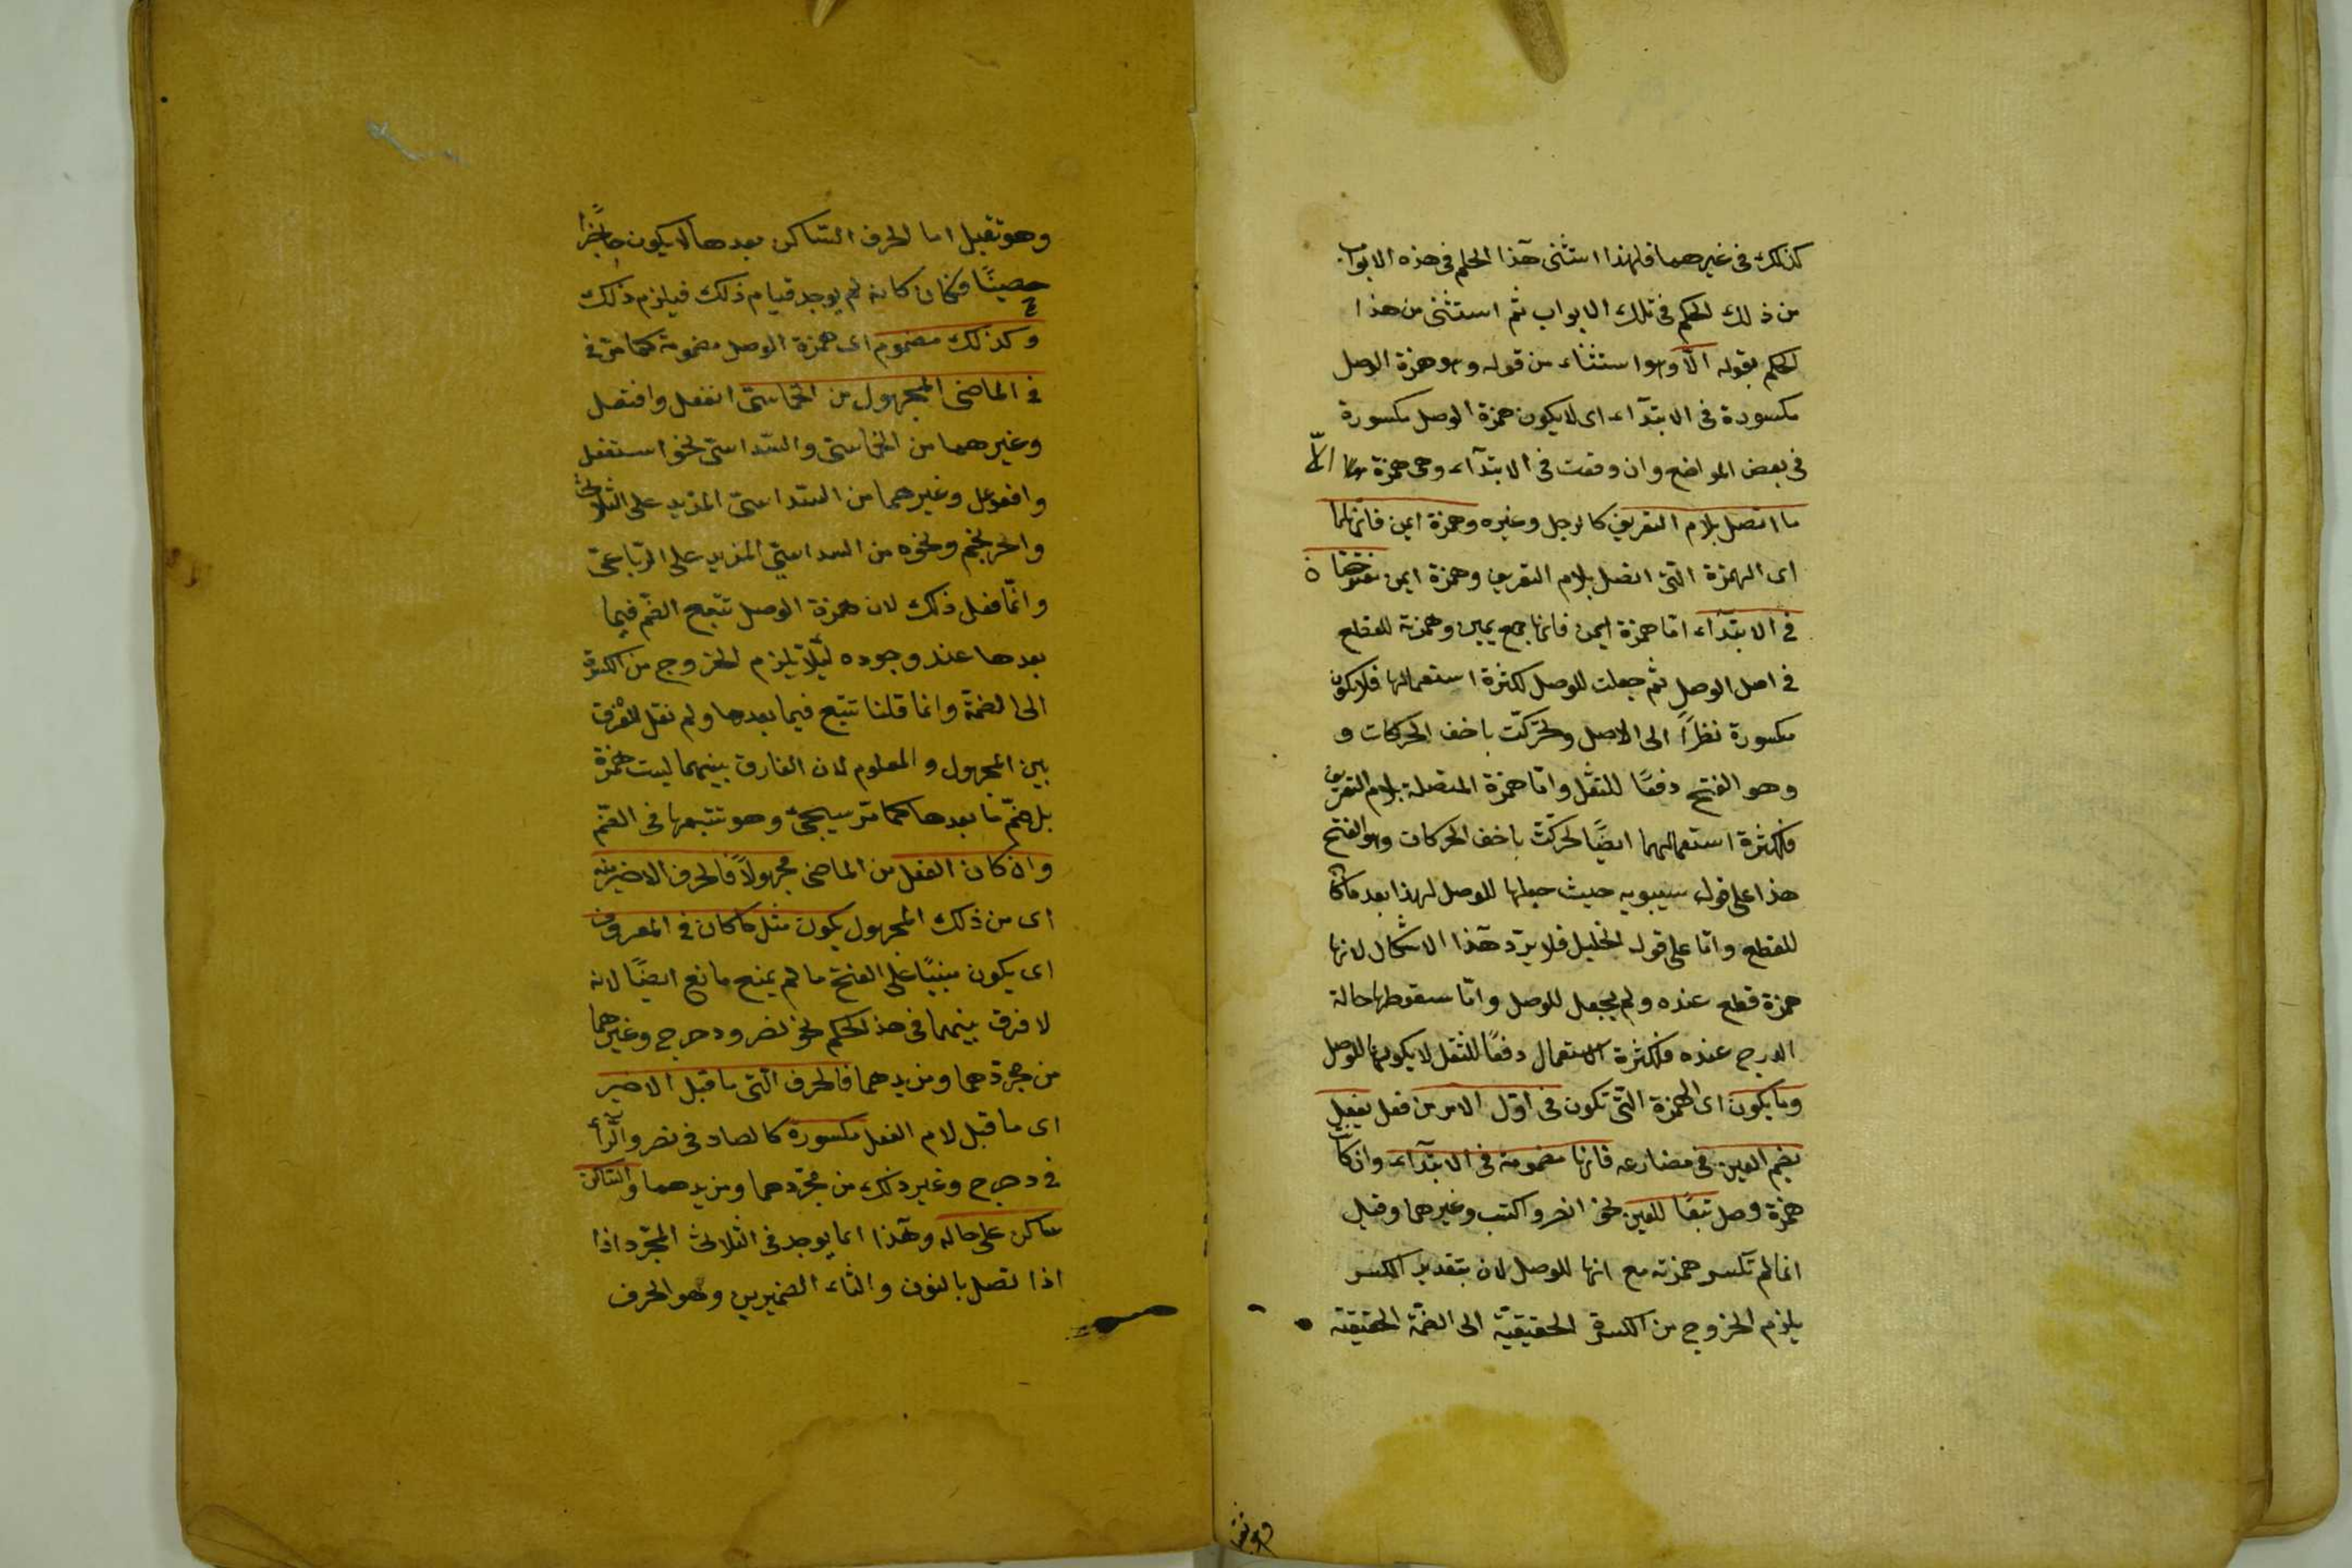 كذلك فى غيرهما فلهذا استثنى هذا الحكم فى هذه الابواب
من ذلك الحكم فى تلك الابواب ثم استثنى من هذا
الحكم بقوله الّا وهو استثناء من قوله وهو همزة الوصل
مكسورة فى الابتدآء اى لا يكون همزة الوصل مكسورة
فى بعض المواضع وان وقعت فى الابتدآء وهى همزة الّا
ما اتصل بلام التعريف كالرجل وغيره وهمزة ايمن فانهما
اى الهمزة التى اتصل بلام التعريف وهمزة ايمن مفتوحتان
فى الابتدآء امّا همزة ايمن فانها جمع يمين وهمزته للقطع
فى اصل الوصل ثم جعلت للوصل لكثرة استعمالها فلا تكون
مكسورة نظرًا الى الاصل وتحرّكت باخف الحركات و
وهو الفتح دفعًا للثقل وامّا همزة المتصلة بلام التعريف
فلكثرة استعمالهما ايضًا تحركت باخف الحركات وهو الفتح
هذا على قول سيبويه حيث جعلها للوصل لهذا بعد ما كان
للقطع وامّا على قول الخليل فلا يرد هذا الاشكال لانها
همزة قطع عنده ولم يجعل للوصل وامّا سقوطها حالة
الدرج عنده فلكثرة الاستعمال دفعًا للثقل لا يكونها للوصل
وما يكون اى الهمزة التى تكون فى اوّل الامر من فعل يفعل
بضم العين فى مضارعه فانها مضمومة فى الابتدآء وان كانت
همزة وصل تبعًا للعين نحو انصر واكتب وغيرهما وقيل
انما لم تكسر همزته مع انها للوصل لان بتقدير الكسر
يلزم الخروج من الكسرة الحقيقيّة الى الضمّة الحقيقيّة
وهو ثقيل
وهو ثقيل اما الحرف الساكن بعدها لا يكون حاجزًا
حصينًا فكان كانه لم يوجد قيام ذلك فيلزم ذلك
وكذلك مضموم اى همزة الوصل مضمومة كما مر فى
فى الماضى المجهول من الخماسىّ انفعل وافتعل
وغيرهما من الخماسىّ والسّداسىّ نحو استفعل
وافعوعل وغيرهما من السّداسىّ المزيد على الثلاثى
واحرنجم ونحوه من السداسىّ المزيد على الرّباعىّ
وانّما فعل ذلك لان همزة الوصل تتّبع الضّم فيما
بعدها عند وجوده ليّلا يلزم الخروج من الكسرة
الى الضمّة وانما قلنا تتبع فيما بعدها ولم نقل للفرق
بين المجهول والمعلوم لان الفارق بينهما ليست همزة
بل ضمّ ما بعدها كما مرّ سيجئ وهو تتبعها فى الضّم
وان كان الفعل من الماضى مجهولًا فالحرف الاخير منه
اى من ذلك المجهول يكون مثل ما كان فى المعروف
اى يكون مبنيًا على الفتح ما لم يمنع مانع ايضًا لانه
لا فرق بينهما فى هذا الحكم نحو نصر ودحرج وغيرهما
من مجرّدهما ومزيدهما فالحرف الّتى ما قبل الاخير
اى ما قبل لام الفعل مكسورة كالصاد فى نصر والرّاء
فى دحرج وغير ذلك من مجرّدهما ومزيدهما والساكن
ساكن على حاله وهذا انما يوجد فى الثلاثى المجرّد اذا
اذا تصل بالنون والتاء الضميرين وهو الحرف